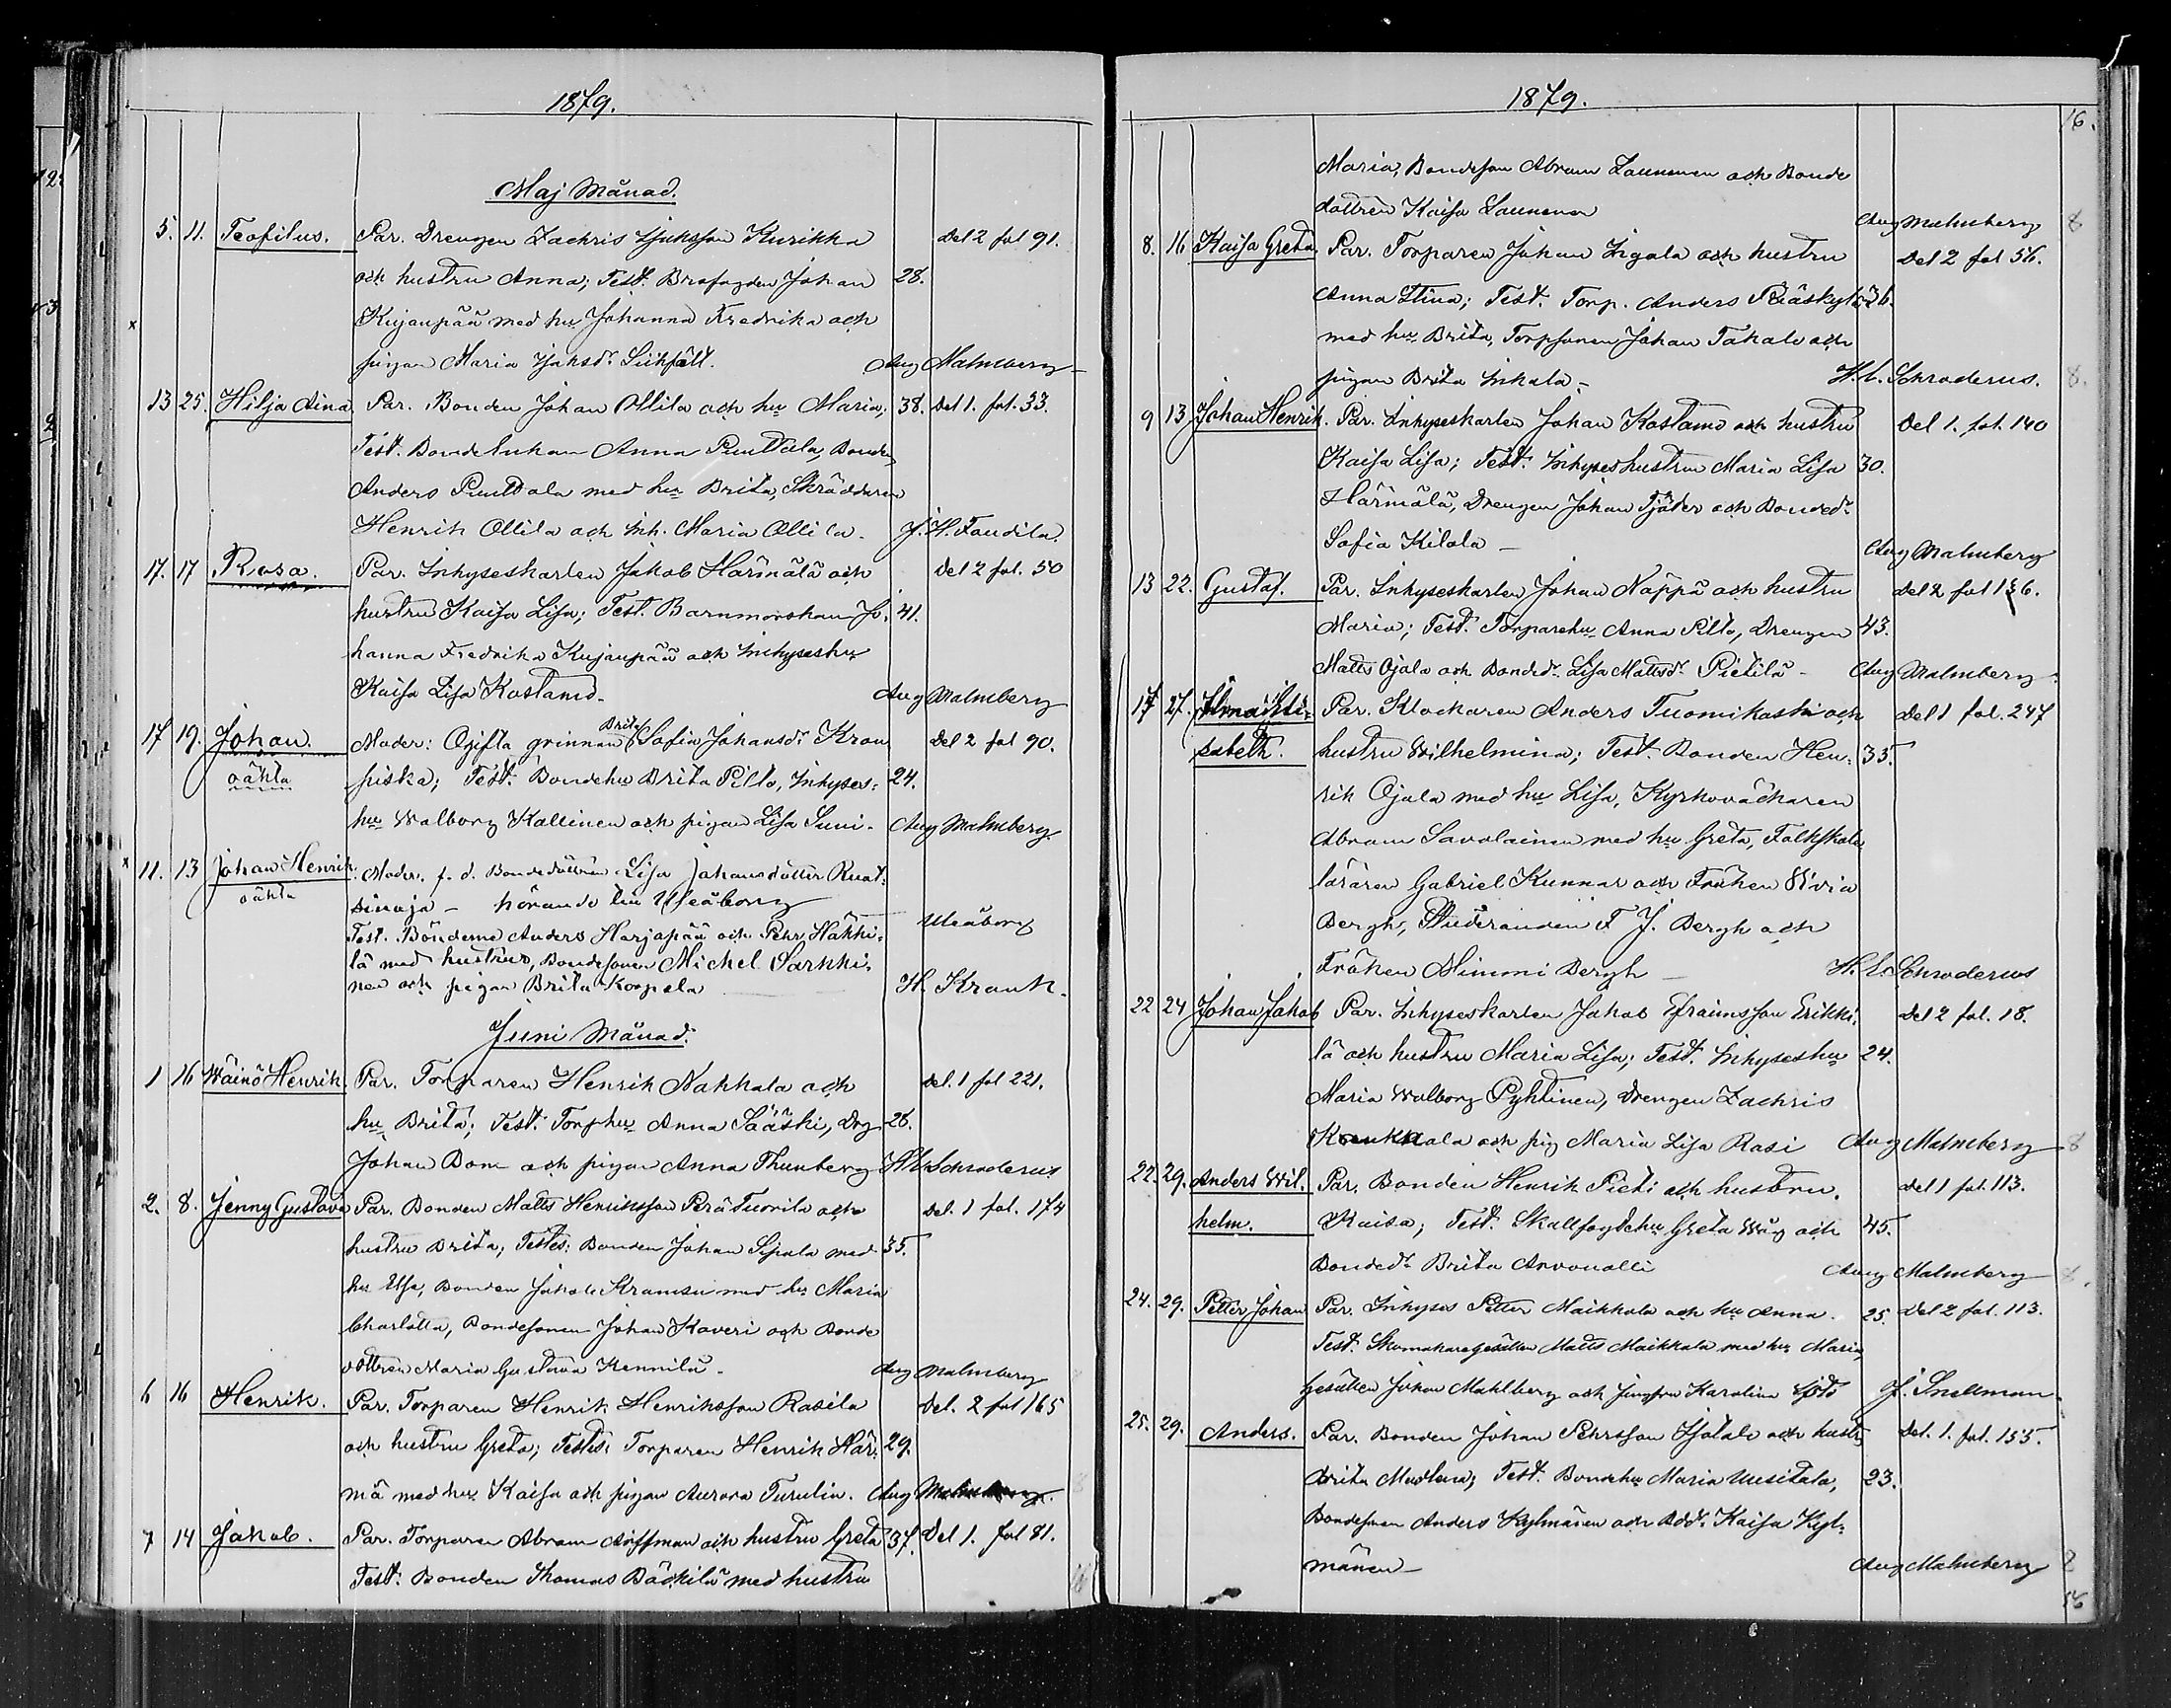 1879.
Maj Månad.
5. 11. Teofilus. Par. Drengen Zachris Isaksson Kurikka Del 2 fol 91.
och hustru Anna; Test. Brofogden Johan 28.
x Kujanpää med hu Johanna Fredrika och
pigan Maria Isaksdr Sickfält. Aug Malmberg
13 25. Hilja Aina Par. Bonden Johan Ollila och hu Maria; 38. Del 1. fol. 33.
Test. Bondeenkan Anna Puuttala, Bonden
Anders Puuttala med hu Brita, Skräddaren
Henrik Ollila och Inh. Maria Ollila. J. H. Fandila.
17. 17 Rosa. Par. Inhyseskarlen Jakob Härmälä och Del 2 fol. 50
hustru Kaisa Lisa; Test. Barnmorskan Jo- 41.
hanna Fredrika Kujanpää och Inhyseshu
Kaisa Lisa Kostamo. Aug Malmberg
17 19. Johan. Moder: Ogifta qvinnan Brita Sofia Johansdr Kron Del 2 fol 90.
oäkta piska; Test. Bondehu Brita Pilto, Inhyses- 24.
hu Walborg Kallinen och pigan Lisa Suni. Aug Malmberg
x 11. 13 Johan Henrik. Moder. f. d. Bondedottren Lisa Johansdotter Ruot-
oäkta sinoja - hörande till Uleåborg
Test. Bönderne Anders Harjapää och Pehr Häkki- Uleåborg
lä med hustrur, Bondesonen Michel Sarkki-
nen och pigan Brita Korpela H. Krank.
Juni Månad.
1 16 Wäinö Henrik. Par. Torparen Henrik Nakkala och Del. 1 fol 221.
hu Brita; Test. Torphu Anna Sääski, Drg 26.
Johan Bom och pigan Anna Thunberg H. L. Schroderus
2. 8. Jenny Gustava Par. Bonden Matts Henriksson Perätuorila och Del. 1 fol. 174
hustru Brita; Testes: Bonden Johan Sipola med 35.
hu Elsa, Bonden Jakob Kramsu med hu Maria
Charlotta, Bondesonen Johan Kaveri och Bonde
dottren Maria Gustava Kennilä. Aug Malmberg
6 16 Henrik. Par. Torparen Henrik Henriksson Rasila Del. 2 fol 165
och hustru Greta; Testes: Torparen Henrik Här- 29.
mä med hu Kaisa och pigan Aurora Turulin. Aug Malmberg.
7 14 Jakob. Par. Torparen Abram Aiffman och hustru Greta 37. Del 1. fol 81.
Test. Bonden Thomas Bäckilä med hustru
1879.
16.
Maria, Bondeson Abram Launonen och Bonde
dottren Kaisa Launonen Aug Malmberg 8
8. 16 Kaisa Greta Par. Torparen Johan Sigala och hustru Del 2 fol 56.
Anna Stina; Test. Torp. Anders Rääskylä 36.
med hu Brita, Torpsonen Johan Takalo och
pigan Brita Inkala - H. L. Schroderus. 8.
9 13 Johan Henrik. Par. Inhyseskarlen Johan Kostamo och hustru Del 1. fol. 140
Kaisa Lisa; Test. Inhyseshustrun Maria Lisa 30.
Härmälä, Drengen Johan Tjäder och Bondedr
Sofia Kilola - Aug Malmberg
13 22. Gustaf. Par. Inhyseskarlen Johan Näppä och hustru Del 2 fol 136.
Maria; Test. Torparehu Anna Pilto, Drengen 43.
Matts Ojala och Bondedr Lisa Mattsdr Pietilä - Aug Malmberg
17 27. Alma Eli- Par. Klockaren Anders Tuomikoski och Del 1 fol. 247
sabeth. hustru Wilhelmina; Test. Bonden Hen- 35.
rik Ojala med hu Lisa, Kyrkoväcktaren
Abram Savolainen med hu Greta, Folkskole
läraren Gabriel Kunnar och Fröken Sivia
Bergh, Studeranden F J. Bergh och
Fröken Mimmi Bergh - H. L. Schroderus
22 24 Johan Jakob Par. Inhyseskarlen Jakob Efraimsson Erikki- Del 2 fol. 18.
lä och hustru Maria Lisa; Test. Inhyseshu 24.
Maria Walborg Pyhtinen, Drengen Zachris
Koukkala och pig Maria Lisa Rasi Aug Malmberg 8
22. 29. Anders Wil- Par. Bonden Henrik Pieti och hustru. Del 1 fol. 113.
helm. Kaisa; Test. Skallfogdehu Greta Wäg och 45.
Bondedr Brita Arvonalli Aug Malmberg 8.
24. 29. Petter Johan Par. Inhyses Petter Maikkola och hu Anna. 25. Del 2 fol. 113.
Test. Skomakaregesällen Matts Maikkola med hu Maria,
Gesällen Johan Mahlberg och Jungfrun Karolina Sjöö J. Snellman
25. 29. Anders. Par. Bonden Johan Pehrsson Isotalo och hustr Del. 1. fol. 155.
Brita Madlena; Test. Bondehu Maria Uusitalo, 23.
Bondesonen Anders Kylmänen och Bdd. Kaisa Kyl-
mänen - Aug Malmberg 8